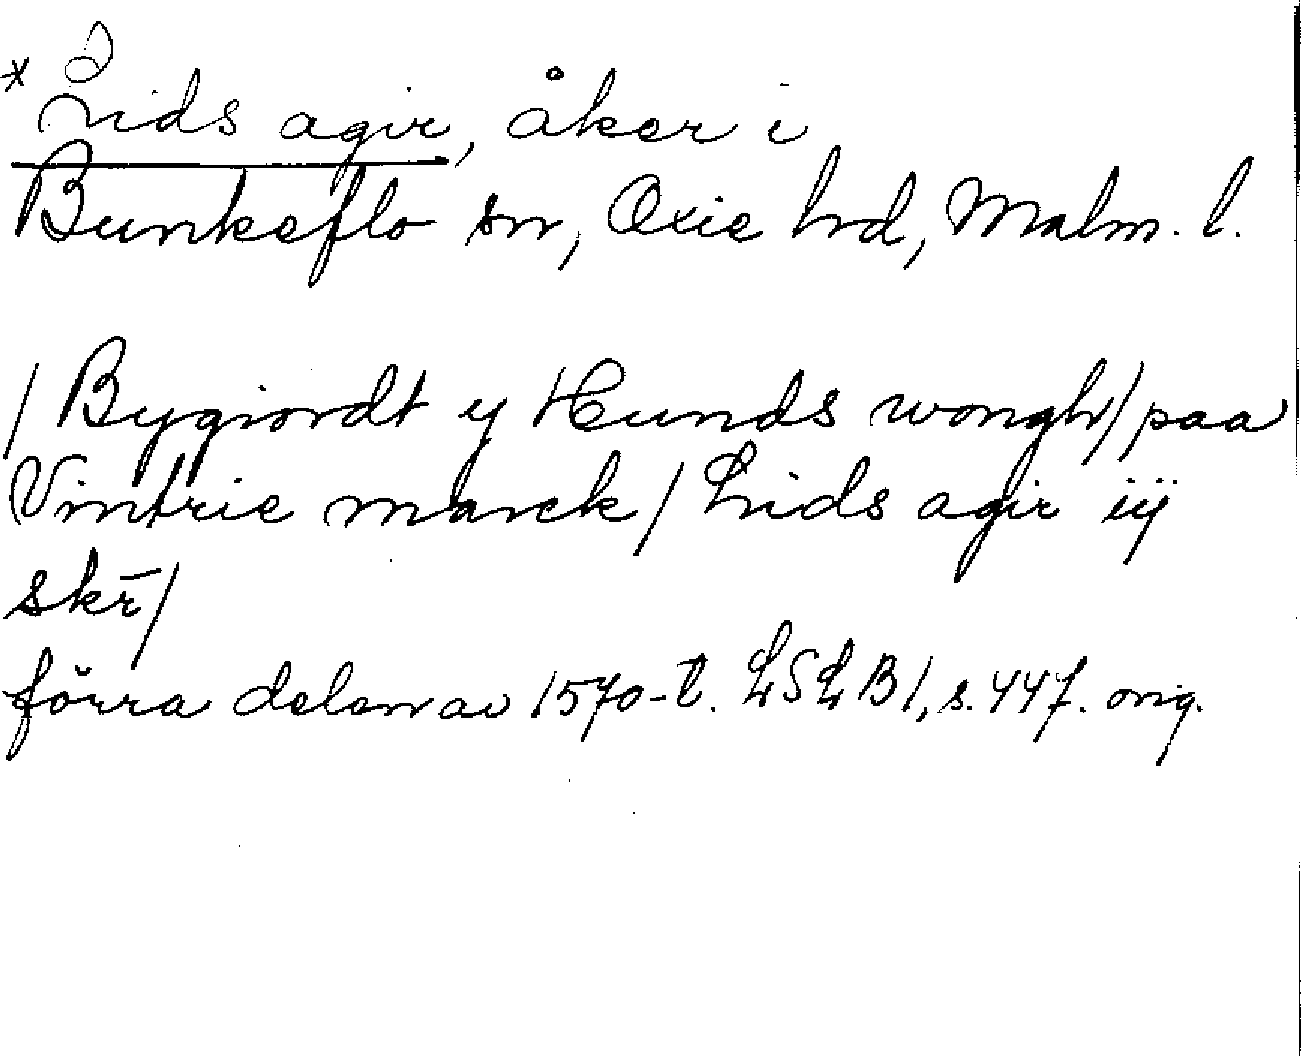 * Lids agir, åker i
Bunkeflo sn, Oxie hd, Malm. l.
/ Bygiordt y Hunds wongh/ paa
Vintrie marck / Lids agir iij
skr̄/
förra delen av 1570-t. LSLB1, s. 447. orig.